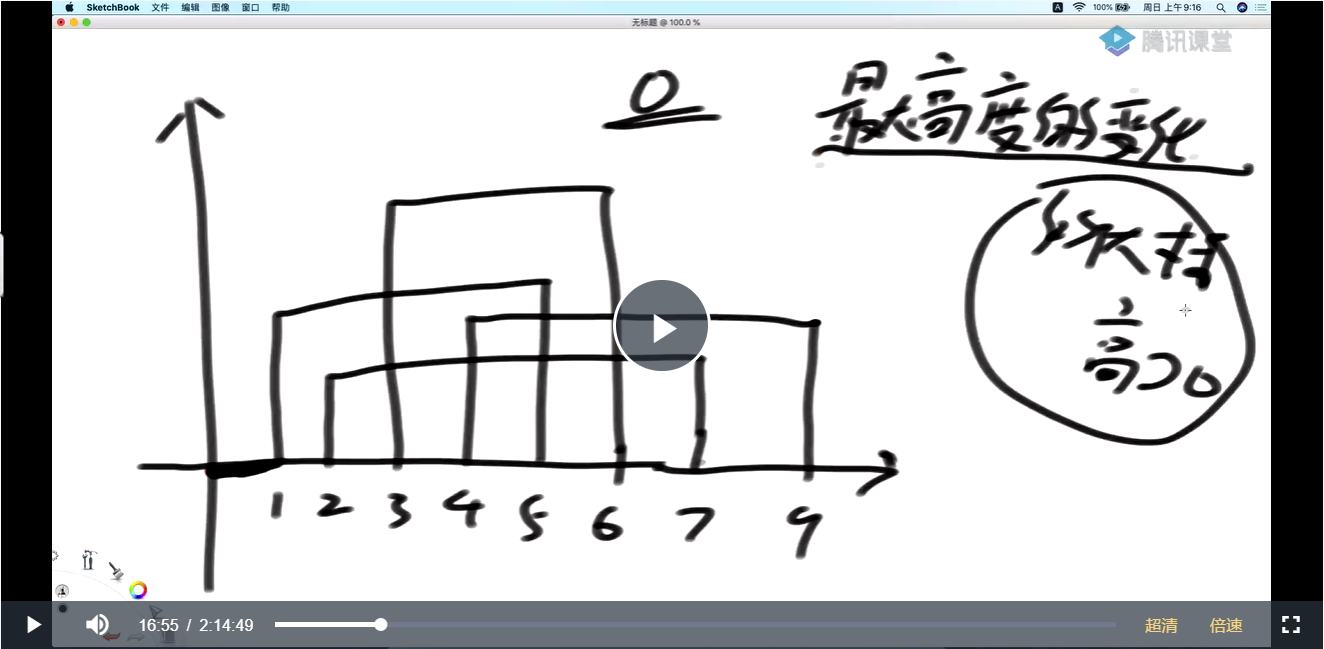 SketchBook 文件 编辑 图像 窗口 帮助
A 100% 周日 上午9:16
无标题 @ 100.0 %
腾讯课堂
0
最大高度的变化
高
1 2 3 4 5 6 7 9
16:55 / 2:14:49 超清 倍速